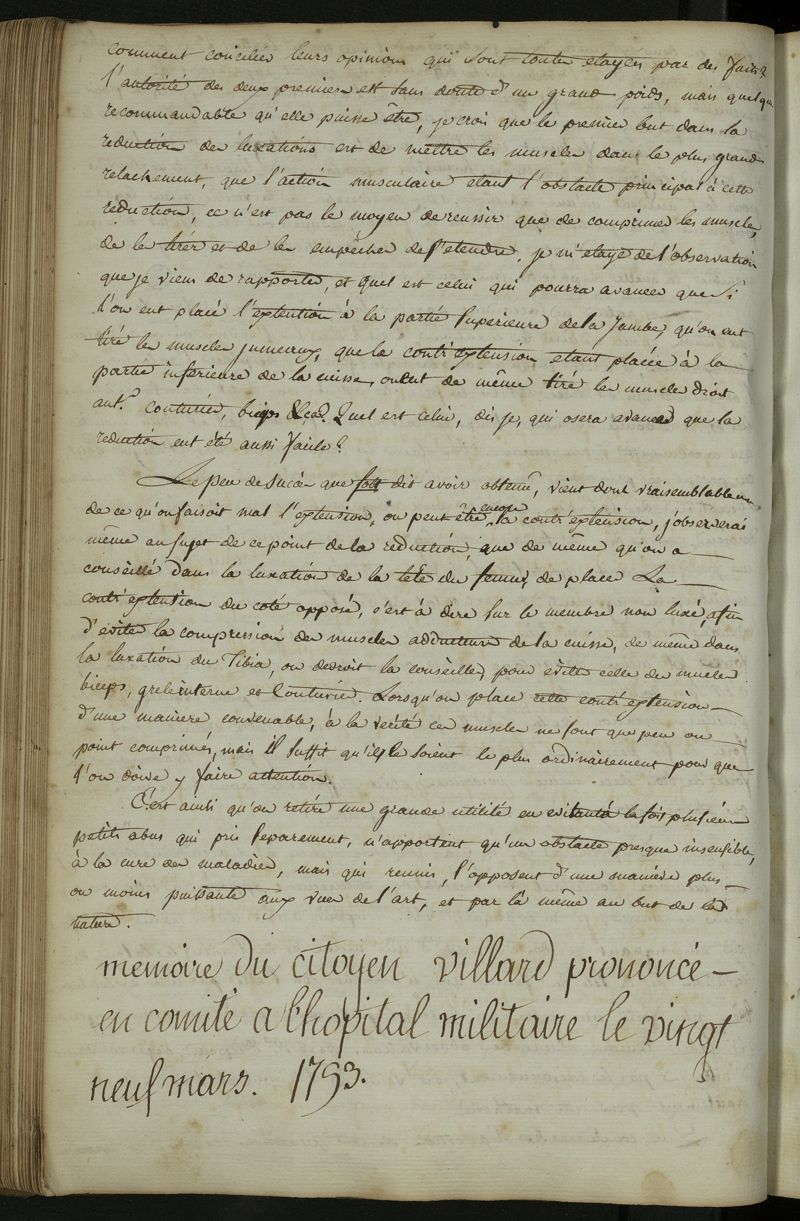 comment concilier leurs opinions qui sont toutes etayées par des faits?
l'autorité des deux premiers est sans doute d'un grand poids, mais quelque
recommandable qu'elle puisse être, je crois que le premier but dans la
reduction des luxations est de mettre les muscles dans le plus grand
relachement, que l'action musculaire etant l'obstacle principal à cette
reduction, ce n'est pas le moyen de reussir que de comprimer les muscles,
de les tirer et de les empêcher de s'etendre. je m'etaye de l'observation
que je viens de rapporter, et quel est celui qui pourra avancer que si
l'on eut placé l'extention à la partie superieure de la jambe, qu'on eut
tiré les muscles jumeaux, que la contr'extension etant placée à la
partie inferieure de la cuisse, on eut de même tiré les muscles droit
ant.r couturier, biceps &ca? Quel est celui, dis je, qui osera avancer que la
reduction eut été aussi facile?
Le peu de succès que dit avoir obtenu, vient donc vraisemblablement
de ce qu'on faisoit mal l'extension, ou peut être encore la contr'extension, j'observerai
même au sujet de ce point de la reduction, que de même qu'on a
conseillé dans la luxation de la tête du femur, de placer la
contr'extention du coté opposé, c'est à dire sur le membre non luxé, afin
d'éviter la compression des muscles adducteurs de la cuisse, de même dans
la luxation du Tibia, on devroit la conseiller, pour éviter celle des muscles
biceps, grele interne et Couturier. Lorsqu'on place cette contr'extension
d'une maniere convenable, à la verité ces muscles ne sont que peu ou
point comprimés, mais il suffit qu'ils le soient le plus ordinairement pour que
l'on doive y faire attention.
C'est ainsi qu'on retire une grande utilité en evitant à la fois plusieurs
petits abus qui pris separement, n'apportent qu'un obstacle presque insensible,
à la cure des maladies, mais qui reunis, s'opposent d'une maniere plus
ou moins puissante aux vues de l'art, et par là même au but de la
nature.
memoire du citoyen villard prononcé
en comité a l'hopital militaire le vingt
neuf mars. 1793.